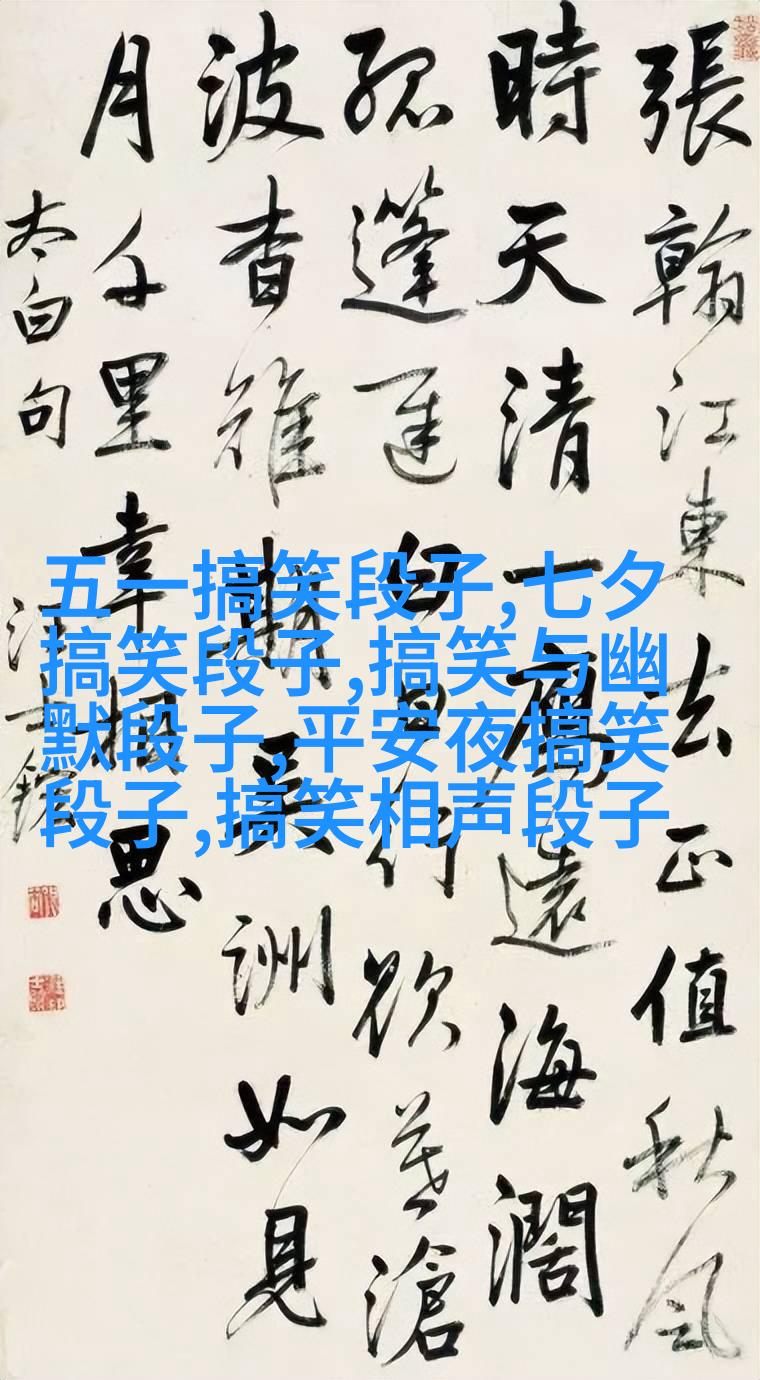 張翰江東去正值秋風
時天清一鴈遠海濶
孤蓬遲白日行欲暮滄
波杳難期吳洲如見
月千里幸相思
太白句
汪士鋐
五一搞笑段子,七夕
搞笑段子,搞笑与幽
默段子,平安夜搞笑
段子,搞笑相声段子